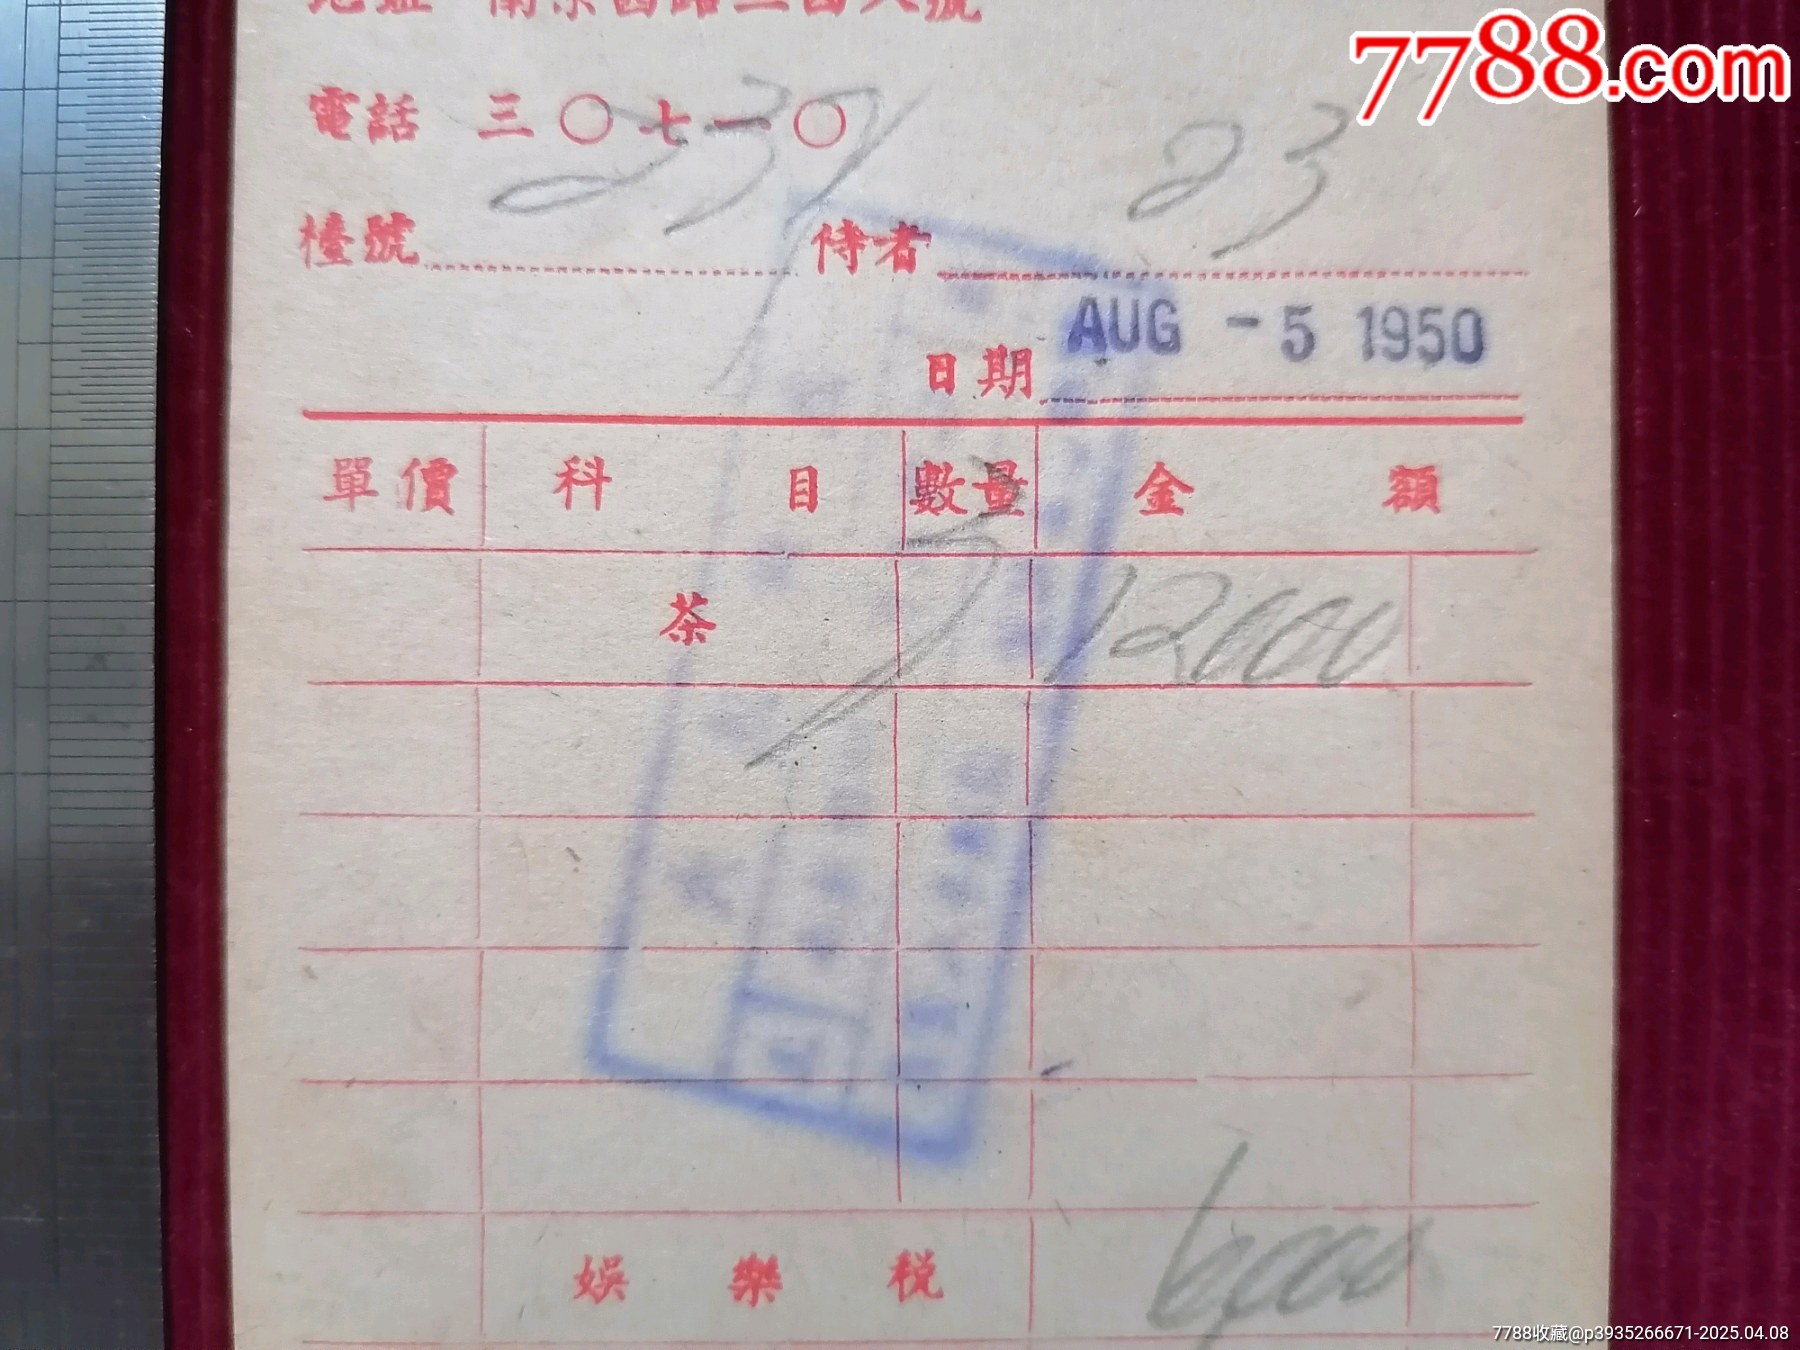 7788.com
電話 三〇七一〇
檯號 231 侍者 23
日期 AUG -5 1950
單價 科目 數量 金額
茶 12000
娛樂稅 6000
7788收藏@p3935266671-2025.04.08